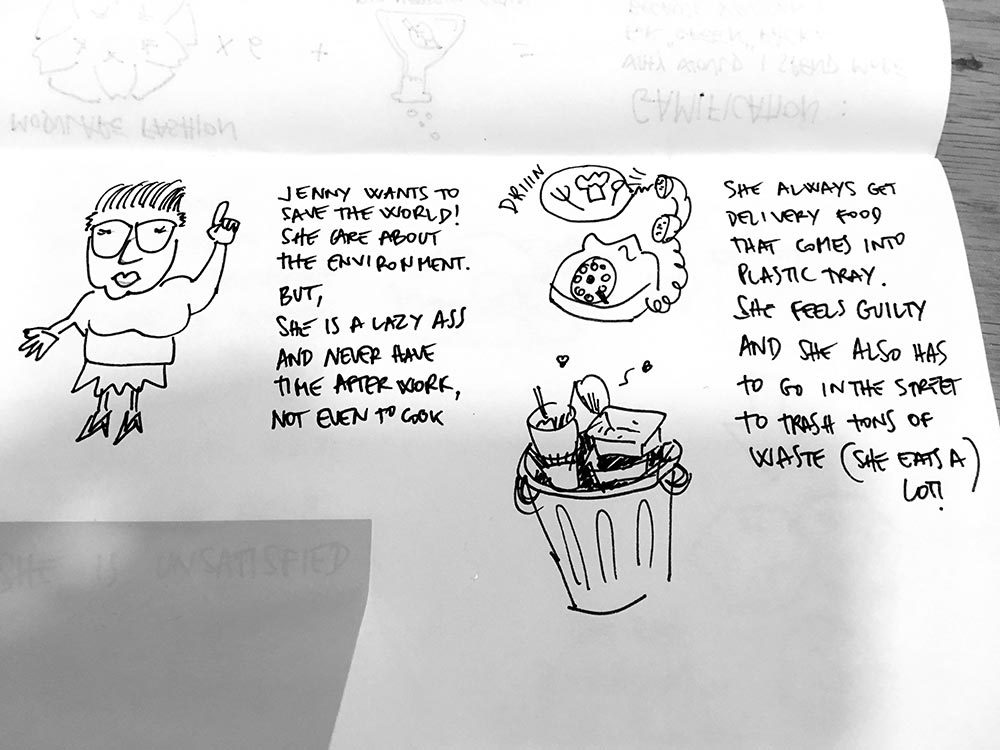 JENNY WANTS TO
SAVE THE WORLD!
SHE CARE ABOUT
THE ENVIRONMENT.
BUT,
SHE IS A LAZY ASS
AND NEVER HAVE
TIME AFTER WORK,
NOT EVEN TO COOK
DRIIIN
SHE ALWAYS GET
DELIVERY FOOD
THAT COMES INTO
PLASTIC TRAY.
SHE FEELS GUILTY
AND SHE ALSO HAS
TO GO IN THE STREET
TO TRASH TONS OF
WASTE (SHE EATS A)
LOT!
SHE IS UNSATISFIED
MODULAR FASHION
+ 9 X
=
GAMIFICATION :
WHY WOULD I SPEND MORE